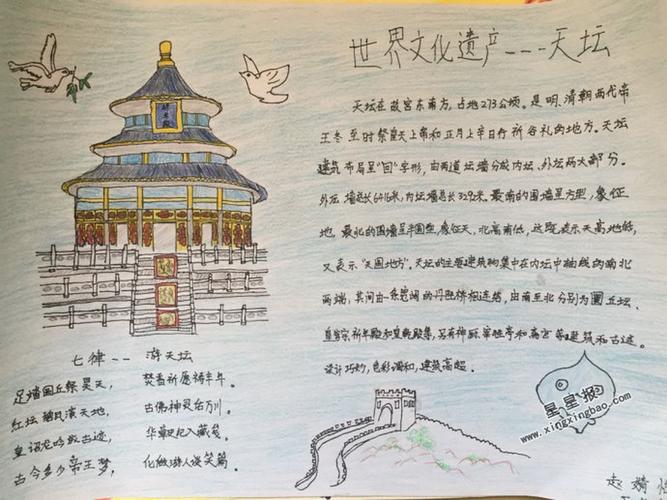 世界文化遗产---天坛
天坛在故宫东南方，占地273公顷。是明、清朝两代帝
王冬至时祭皇天上帝和正月上辛日行祈谷礼的地方。天坛
建筑布局呈"回"字形，由两道坛墙分成内坛、外坛两大部分。
外坛墙总长6416米，内坛墙总长3292米。最南的围墙呈方型，象征
地，最北的围墙呈半圆型，象征天，北高南低，这既表示天高地低，
又表示"天圆地方"。天坛的主要建筑物集中在内坛中轴线的南北
两端，其间由一条宽阔的丹陛桥相连结，由南至北分别为圜丘坛、
皇穹宇祈年殿和皇乾殿等，另有神厨、宰牲亭和斋宫等建筑和古迹。
设计巧妙，色彩调和，建筑高超。
七律--游天坛
足踏圜丘祭昊天，焚香祈愿祷丰年。
红坛 天地，古佛神灵 百川。
皇 龙吟 古迹，华 入藏 。
古今多少帝王梦，化做游人谈笑篇。
星星报
www.xingxingbao.com
赵